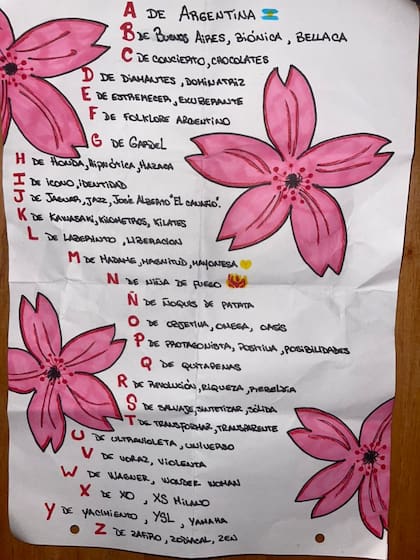 A DE ARGENTINA 🇦🇷
B DE BUENOS AIRES, BIÓNICA, BELLACA
C DE CONCIERTO, CHOCOLATES
D DE DIAMANTES, DOMINATRIZ
E DE ESTREMECER, EXUBERANTE
F DE FOLKLORE ARGENTINO
G DE GARDEL
H DE HONDA, HIPNÓTICA, HAZAÑA
I DE ICONO, IDENTIDAD
J DE JAGUAR, JAZZ, JOSÉ ALBERTO "EL CANARIO".
K DE KAWASAKI, KILÓMETROS, KILATES
L DE LABERINTO, LIBERACION
M DE MADAME, MAGNITUD, MAYONESA 💛
N DE NIÑA DE FUEGO
Ñ DE ÑOQUIS DE PATATA
O DE OBJETIVA, OMEGA, OASIS
P DE PROTAGONISTA, POSITIVA, POSIBILIDADES
Q DE QUITAPENAS
R DE REVOLUCIÓN, RIQUEZA, REBELDÍA
S DE SALVAJE, SINTETIZAR, SÓLIDA
T DE TRANSFORMAR, TRANSPARENTE
U DE ULTRAVIOLETA, UNIVERSO
V DE VORAZ, VIOLENTA
W DE WAGNER, WONDER WOMAN
X DE XO, XS MILANO
Y DE YACIMIENTO, YSL, YAMAHA
Z DE ZAFIRO, ZODIACAL, ZEN